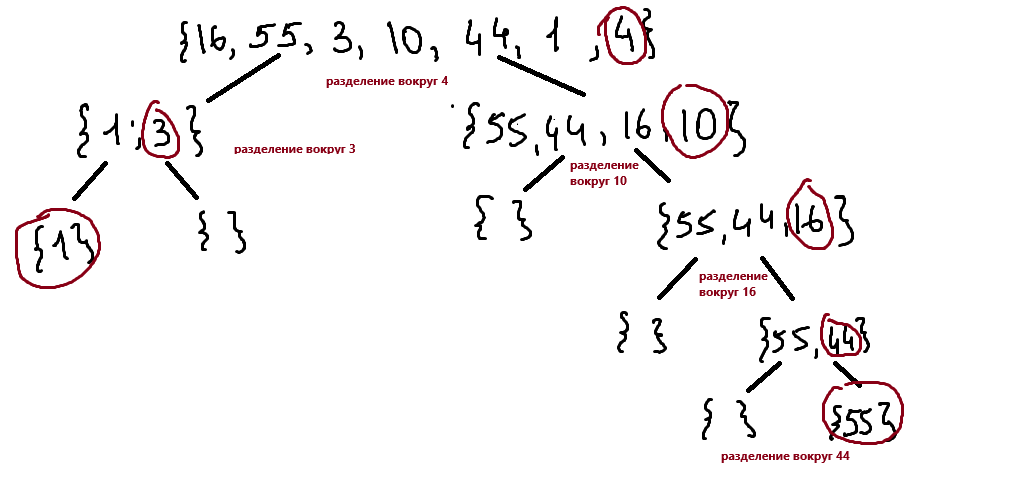 {16, 55, 3, 10, 44, 1, 4}
разделение вокруг 4
{1, 3}
{55, 44, 16, 10}
разделение вокруг 3
разделение
вокруг 10
{1}
{ }
{ }
{55, 44, 16}
разделение
вокруг 16
{ }
{55, 44}
{ }
{55}
разделение вокруг 44